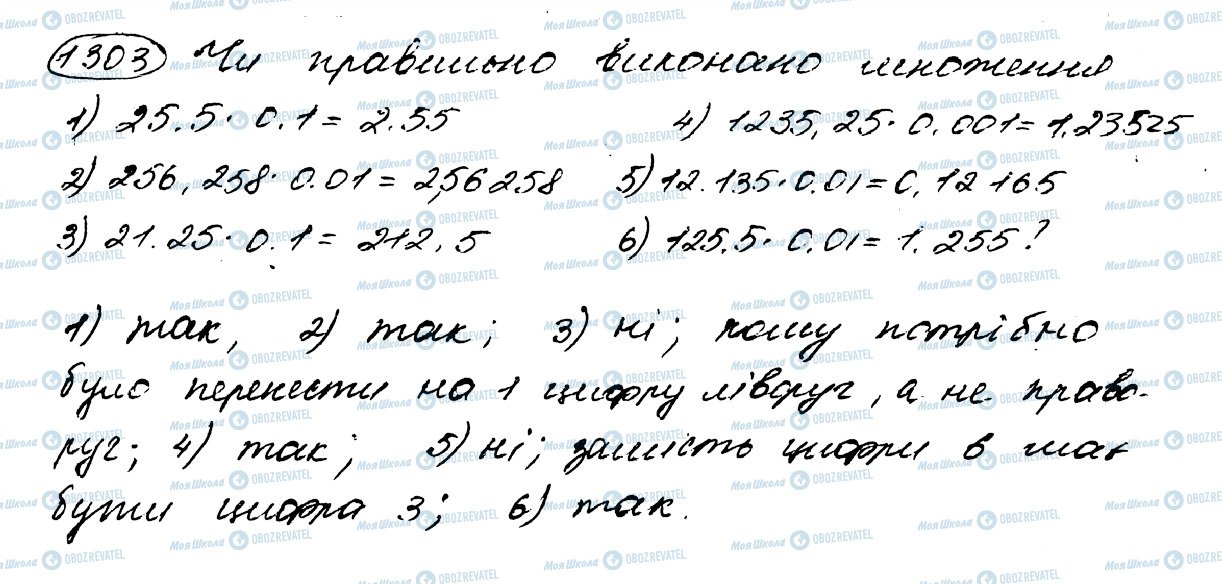 1303 Чи правильно виконано множення
1) 25.5 · 0.1 = 2.55
4) 1235,25 · 0.001 = 1.23525
2) 256,258 · 0.01 = 2,56258
5) 12.135 · 0.01 = 0,12165
3) 21.25 · 0.1 = 212,5
6) 125.5 · 0.01 = 1.255?
1) так, 2) так; 3) ні; кому потрібно
було перенести на 1 цифру ліворуч, а не право-
руч; 4) так; 5) ні; замість цифри 6 має
бути цифра 3; 6) так.
Моя Школа OBOZREVATEL